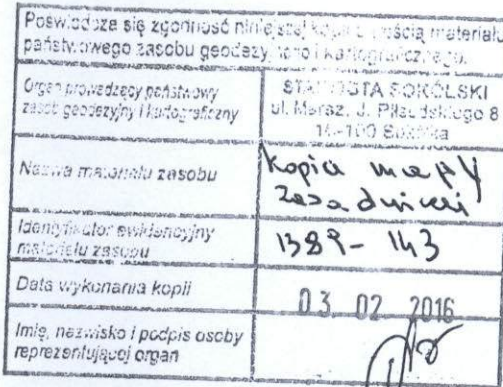 Poświadcza się zgodność niniejszej kopii z treścią materiału
państwowego zasobu geodezyjnego i kartograficznego.
Organ prowadzący państwowy
zasób geodezyjny i kartograficzny
STAROSTA SOKÓLSKI
ul. Marsz. J. Piłsudskiego 8
16-100 Sokółka
Nazwa materiału zasobu
Kopia mapy
zasadniczej
Identyfikator ewidencyjny
materiału zasobu
1389-143
Data wykonania kopii
03 02 2016
Imię, nazwisko i podpis osoby
reprezentującej organ